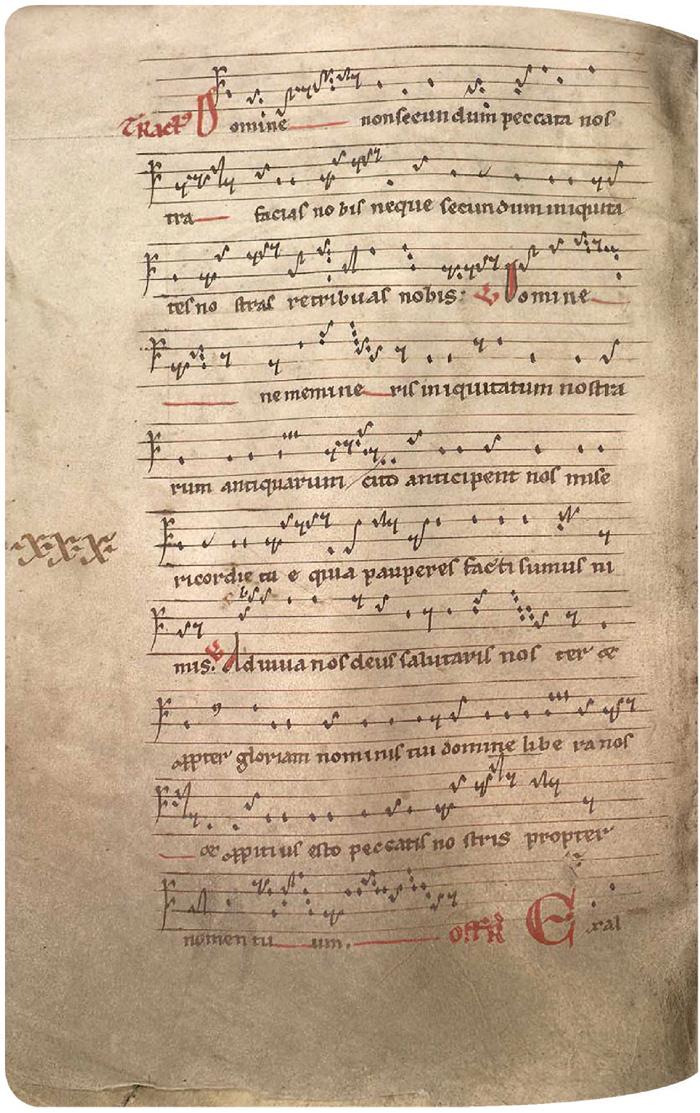 Tract Domine non secundum peccata nos
tra facias no bis neque secundum iniquita
tes no stras retribuas nobis: V Domine
ne memine ris iniquitatum nostra
rum antiquarum cito anticipent nos mise
·X·X·X·
ricordie tu e quia pauperes facti sumus ni
mis. V Adiuua nos deus salutaris nos ter &
propter gloriam nominis tui domine libe ra nos
& propitius esto peccatis no stris propter
nomen tu um. Off Exal